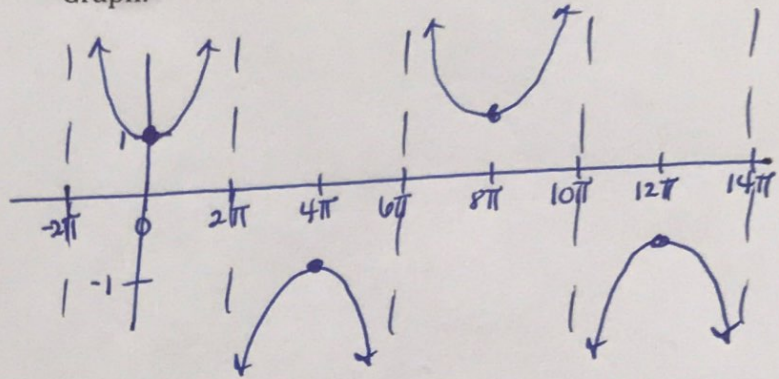 Graph:
1
-2π 0 2π 4π 6π 8π 10π 12π 14π
-1